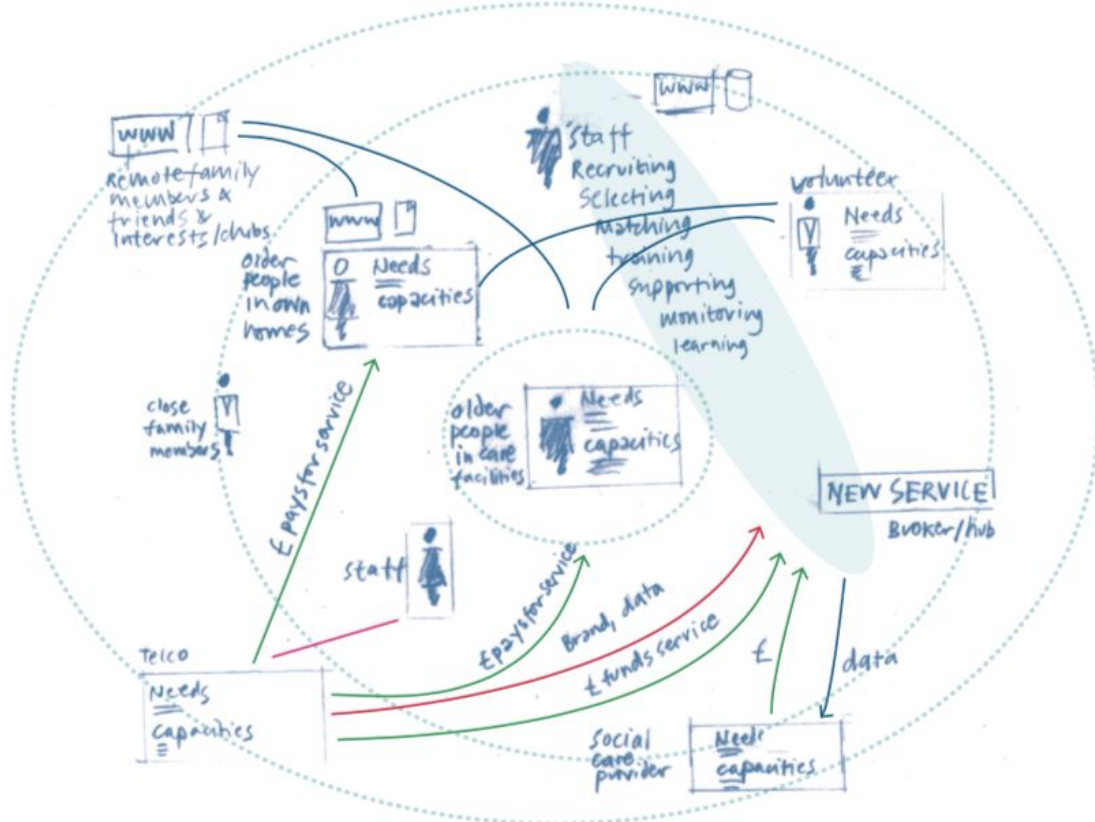 www
Remote family
members &
friends &
Interests/clubs
www
older
people
in own
homes
Needs
capacities
www
Staff
Recruiting
Selecting
Matching
training
supporting
monitoring
learning
volunteer
Needs
capacities
close
family
members
£ pays for service
older
people
in care
facilities
Needs
capacities
NEW SERVICE
Broker/hub
staff
£ pays for service
Brand, data
£ funds service
£
data
Telco
Needs
capacities
Social
care
provider
Needs
capacities